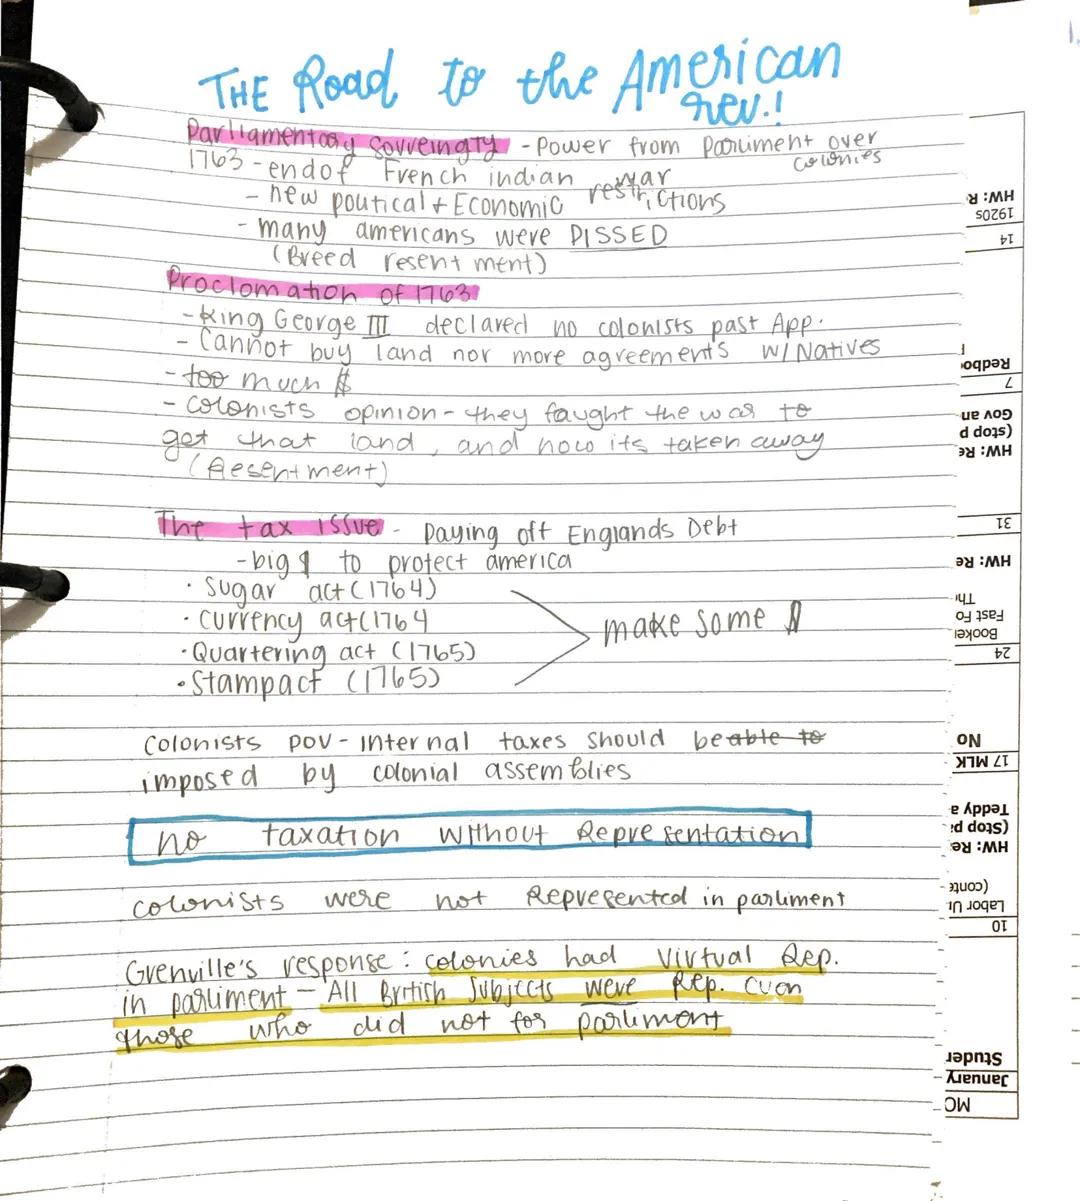 THE Road to the American
rev.!
Parliamentary Sovreingty - Power from Pariment over
colonies
1763 - end of French indian war
- new political + Economic restrictions
- many americans were PISSED
(Breed resentment)
Proclomation of 1763
- King George III declared no colonists past App.
- Cannot buy land nor more agreements w/ Natives
- too much $
- colonists opinion - they faught the war to
get that land, and now its taken away
(Resentment)
The tax issue - Paying off Englands Debt
- big $ to protect america
• Sugar act (1764)
• Currency act (1764
• Quartering act (1765)
• Stampact (1765)
make some $
Colonists POV - internal taxes should be able to
imposed by colonial assemblies
no taxation without Representation
colonists were not Represented in parliment
Grenville's response: colonies had virtual Rep.
in parliment - All British Subjects were Rep. even
those who did not for parliment
HW: R
1920s
14
Redboo
7
Gov an
(stop p
HW: Re
31
HW: Re
Th
Fast Fo
Booker
24
No
17 MLK
Teddy a
(Stop p
HW: Re
(conte
Labor Ur
10
Studer
January
MO